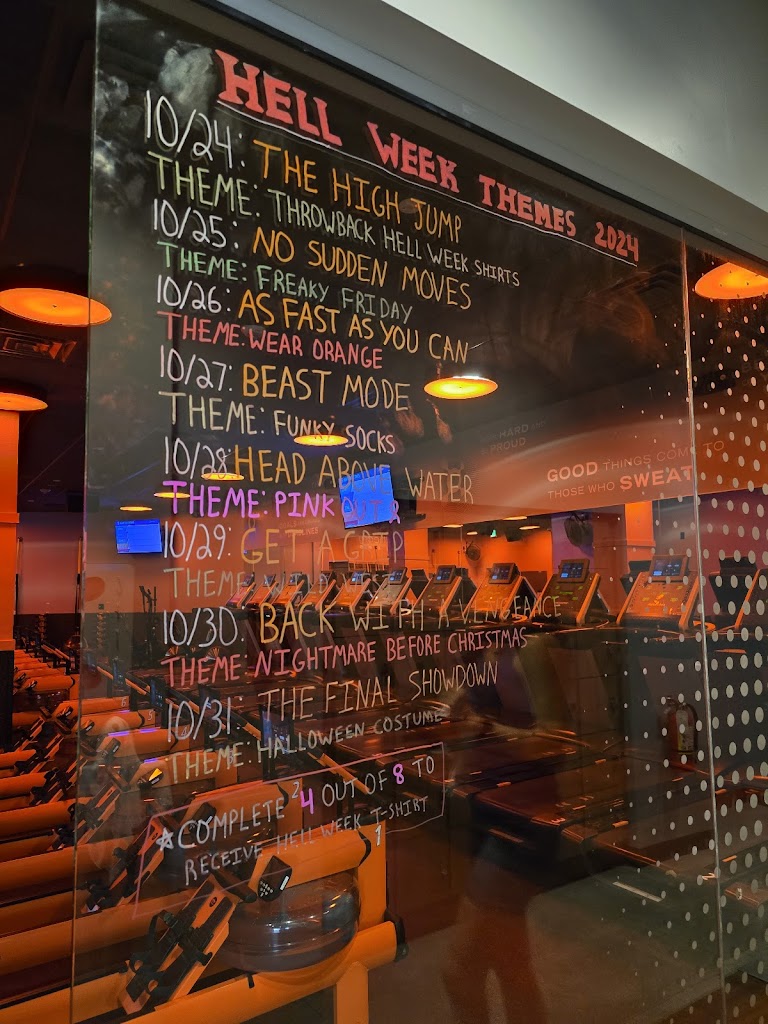 HELL WEEK THEMES 2024
10/24: THE HIGH JUMP
THEME: THROWBACK HELL WEEK SHIRTS
10/25: NO SUDDEN MOVES
THEME: FREAKY FRIDAY
10/26: AS FAST AS YOU CAN
THEME: WEAR ORANGE
10/27: BEAST MODE
THEME: FUNKY SOCKS
10/28: HEAD ABOVE WATER
THEME: PINK OUT
10/29: GET A GRIP
THEME
10/30: BACK WITH A VENGEANCE
THEME: NIGHTMARE BEFORE CHRISTMAS
10/31: THE FINAL SHOWDOWN
THEME: HALLOWEEN COSTUME
*COMPLETE 4 OUT OF 8 TO
RECEIVE HELL WEEK T-SHIRT
HARD
PROUD
GOOD THINGS COME TO
THOSE WHO SWEAT